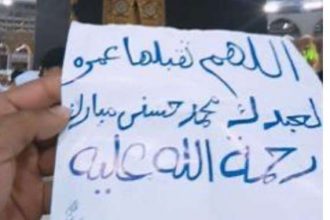 اللهم تقبلها عمره
لعبدك محمد حسنى مبارك
رحمة الله عليه